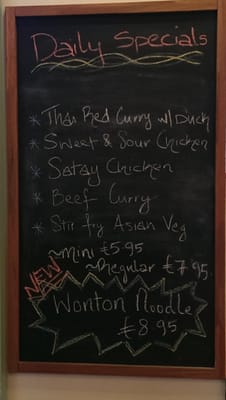 Daily Specials
* Thai Red Curry w/ Duck
* Sweet & Sour Chicken
* Satay Chicken
* Beef Curry
* Stir fry Asian Veg
~Mini €5.95
~Regular €7.95
NEW
Wonton Noodle
€8.95